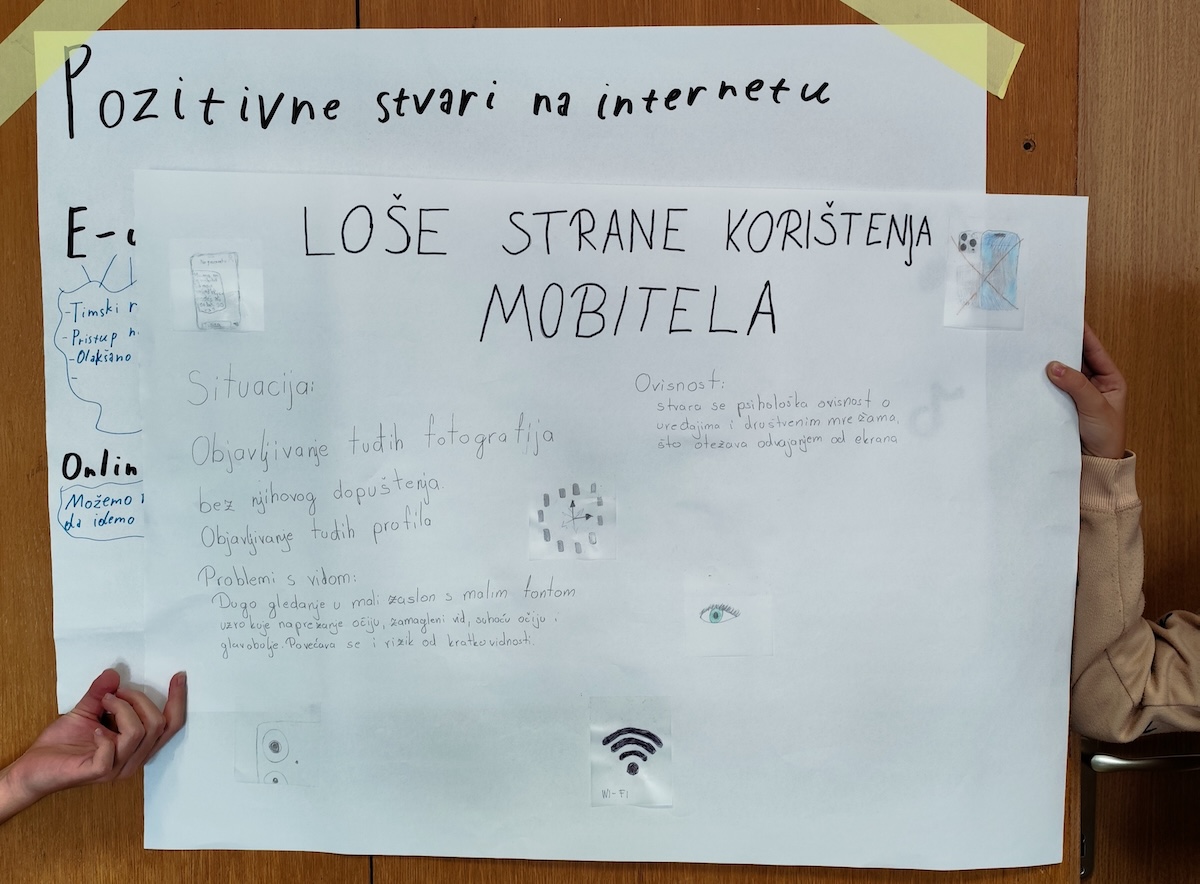 Pozitivne stvari na internetu
E-
-Timski r
-Pristup n
-Olakšano
-
Onlin
Možemo
da idemo
LOŠE STRANE KORIŠTENJA
MOBITELA
Situacija:
Objavljivanje tuđih fotografija
bez njihovog dopuštenja.
Objavljivanje tuđih profila
Problemi s vidom:
Dugo gledanje u mali zaslon s malim fontom
uzrokuje naprezanje očiju, zamagleni vid, suhoću očiju i
glavobolje. Povećava se i rizik od kratkovidnosti.
Ovisnost:
stvara se psihološka ovisnost o
uređajima i društvenim mrežama,
što otežava odvajanjem od ekrana
WI-FI